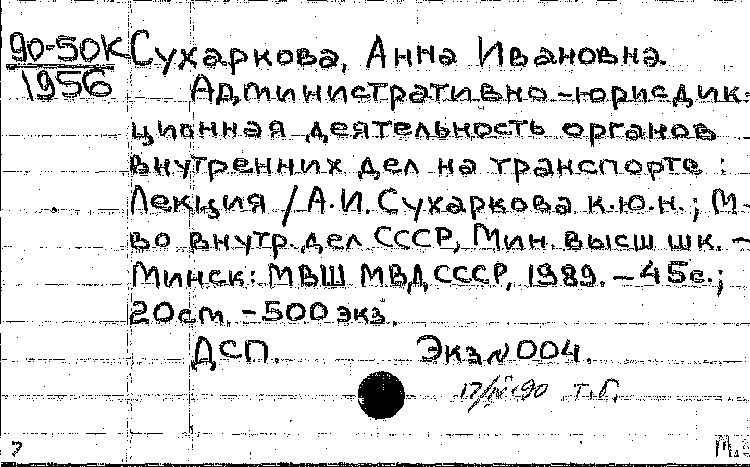 90-50К Сухаркова, Анна Ивановна.
1956 Административно-юрисдик-
ционная деятельность органов
внутренних дел на транспорте :
Лекция / А.И. Сухаркова к.ю.н.; М-
во внутр. дел СССР, Мин. высш шк. –
Минск: МВШ МВД СССР, 1989. – 45с.;
20см. – 500 экз.
ДСП. Экз. № 004.
Т.Г.